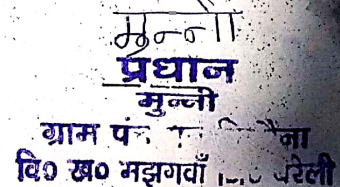 मुन्नी
प्रधान
मुन्नी
ग्राम पं०
वि० ख० मझगवाँ बरेली